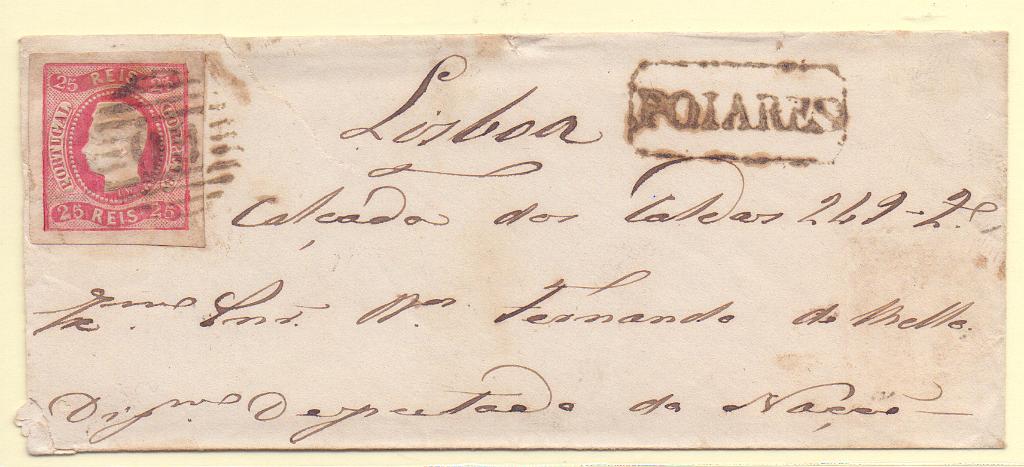 25 REIS 25
PORTUGAL
CORREIO
25 REIS 25
POIARES
Lisboa
Calçada dos Caldas 249-2.º
Ex.mo Snr. D.or Fernando de Mello.
Dig.mo Deputado da Nação —